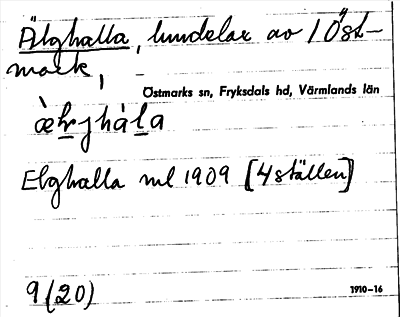 Älghalla, lundelar av 1 Öst-
mark,
Östmarks sn, Fryksdals hd, Värmlands län
Elghalla ml 1909 [4 ställen]
9(20)
1910-16